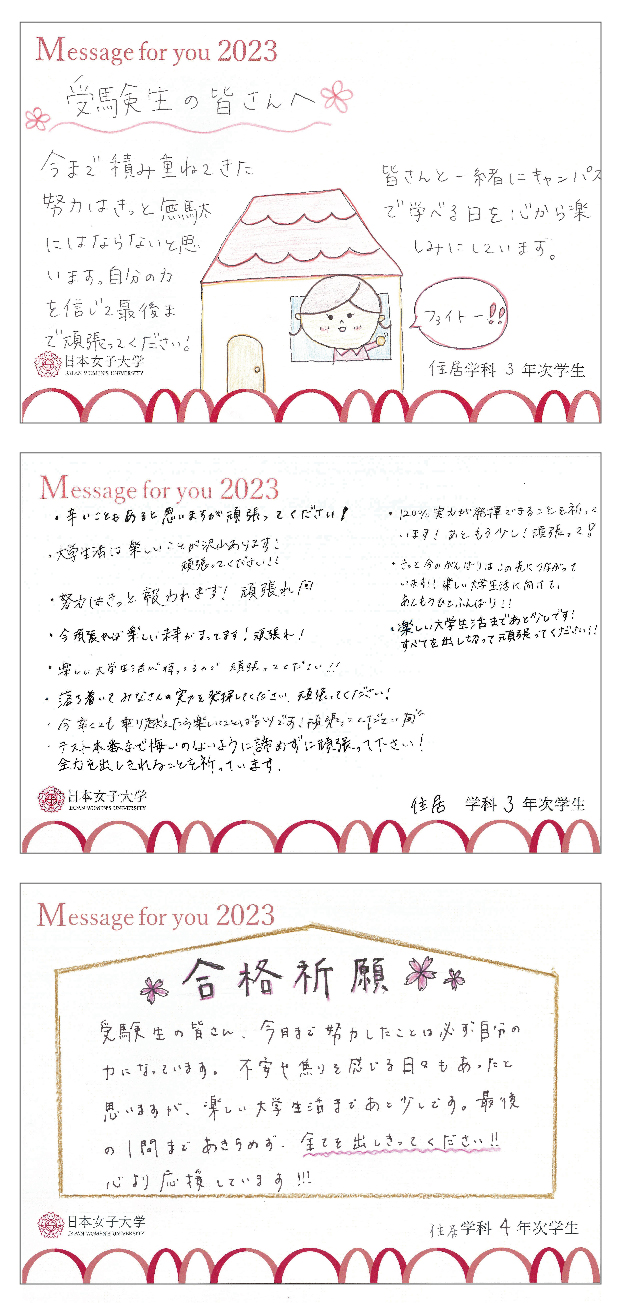 Message for you 2023
受験生の皆さんへ
今まで積み重ねてきた
努力はきっと無駄
にはならないと思
います。自分の力
を信じて最後ま
で頑張ってください!
皆さんと一緒にキャンパス
で学べる日を心から楽
しみにしています。
ファイトー!!
日本女子大学
JAPAN WOMEN'S UNIVERSITY
住居学科 3 年次学生
Message for you 2023
・辛いこともあると思いますが頑張ってください!
・大学生活は楽しいことが沢山あります!
頑張ってください!!
・努力はきっと報われます! 頑張れ
・今頑張れば楽しい未来がまってます!頑張れ!
・楽しい大学生活が待ってるので 頑張ってください!!
・落ち着いてみなさんの実力を発揮してください。頑張ってください!
・今辛くても乗り越えたら楽しいことばかりです!頑張ってください
・テスト本番まで悔いのないように諦めずに頑張って下さい!
全力を出しきれることを祈っています。
・120%実力が発揮できることを祈って
います! あともう少し!頑張って!!
・きっと今のがんばりはこの先につながって
います! 楽しい大学生活に向けて、
あともうひとふんばり!!
・楽しい大学生活まであと少しです!
すべてを出し切って頑張ってください!!
日本女子大学
JAPAN WOMEN'S UNIVERSITY
住居 学科 3 年次学生
Message for you 2023
合格祈願
受験生の皆さん、今日まで努力したことは必ず自分の
力になっています。不安や焦りを感じる日々もあったと
思いますが、楽しい大学生活まであと少しです。最後
の1問まであきらめず、全てを出しきってください!!
心より応援しています!!!
日本女子大学
JAPAN WOMEN'S UNIVERSITY
住居学科 4 年次学生